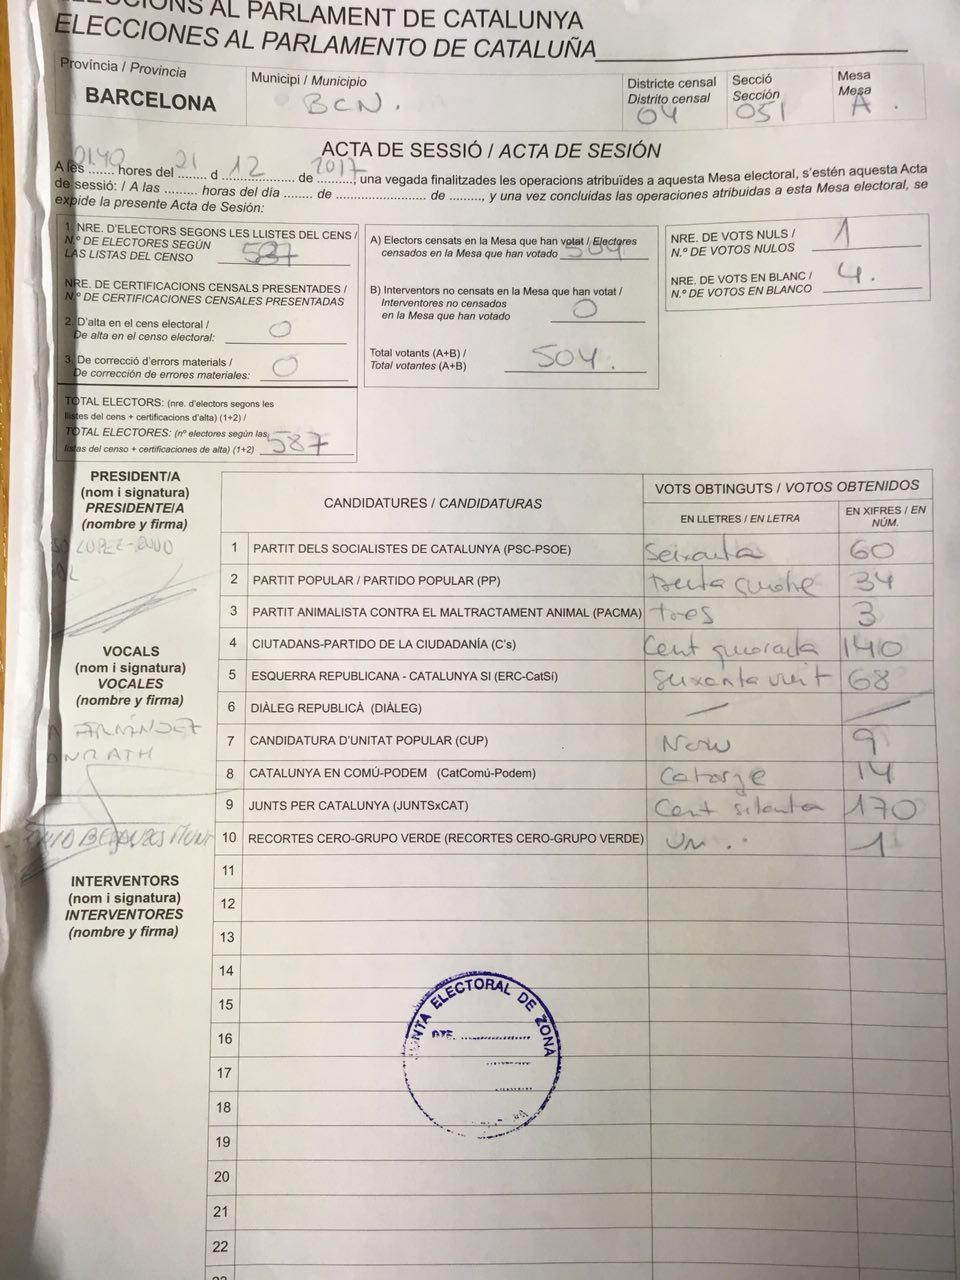 ELECCIONS AL PARLAMENT DE CATALUNYA
ELECCIONES AL PARLAMENTO DE CATALUÑA
Província / Provincia
BARCELONA
Municipi / Municipio
BCN.
Districte censal
Distrito censal
04
Secció
Sección
051
Mesa
Mesa
A.
ACTA DE SESSIÓ / ACTA DE SESIÓN
A les 21.40 hores del 21 d 12 de 2017, una vegada finalitzades les operacions atribuïdes a aquesta Mesa electoral, s'estén aquesta Acta
de sessió: / A las ......... horas del día ....... de ........................ de ........., y una vez concluidas las operaciones atribuidas a esta Mesa electoral, se
expide la presente Acta de Sesión:
1. NRE. D'ELECTORS SEGONS LES LLISTES DEL CENS /
N.º DE ELECTORES SEGÚN
LAS LISTAS DEL CENSO 587
NRE. DE CERTIFICACIONS CENSALS PRESENTADES /
N.º DE CERTIFICACIONES CENSALES PRESENTADAS
2. D'alta en el cens electoral /
De alta en el censo electoral: 0
3. De correcció d'errors materials /
De corrección de errores materiales: 0
TOTAL ELECTORS: (nre. d'electors segons les
llistes del cens + certificacions d'alta) (1+2) /
TOTAL ELECTORES: (nº electores según las
listas del censo + certificaciones de alta) (1+2) 587
A) Electors censats en la Mesa que han votat / Electores
censados en la Mesa que han votado 504
B) Interventors no censats en la Mesa que han votat /
Interventores no censados
en la Mesa que han votado 0
Total votants (A+B) /
Total votantes (A+B) 504.
NRE. DE VOTS NULS /
N.º DE VOTOS NULOS 1
NRE. DE VOTS EN BLANC /
N.º DE VOTOS EN BLANCO 4.
PRESIDENT/A
(nom i signatura)
PRESIDENTE/A
(nombre y firma)
VOCALS
(nom i signatura)
VOCALES
(nombre y firma)
INTERVENTORS
(nom i signatura)
INTERVENTORES
(nombre y firma)
CANDIDATURES / CANDIDATURAS
VOTS OBTINGUTS / VOTOS OBTENIDOS
EN LLETRES / EN LETRA
EN XIFRES / EN NÚM.
1 PARTIT DELS SOCIALISTES DE CATALUNYA (PSC-PSOE) Seixanta 60
2 PARTIT POPULAR / PARTIDO POPULAR (PP) trenta quatre 34
3 PARTIT ANIMALISTA CONTRA EL MALTRACTAMENT ANIMAL (PACMA) tres 3
4 CIUTADANS-PARTIDO DE LA CIUDADANÍA (C's) Cent quaranta 140
5 ESQUERRA REPUBLICANA - CATALUNYA SI (ERC-CatSí) Seixanta vuit 68
6 DIÀLEG REPUBLICÀ (DIÀLEG) — —
7 CANDIDATURA D'UNITAT POPULAR (CUP) Nou 9
8 CATALUNYA EN COMÚ-PODEM (CatComú-Podem) Catorze 14
9 JUNTS PER CATALUNYA (JUNTSxCAT) Cent setanta 170
10 RECORTES CERO-GRUPO VERDE (RECORTES CERO-GRUPO VERDE) Un.. 1
11
12
13
14
15
16
17
18
19
20
21
22
23
JUNTA ELECTORAL DE ZONA